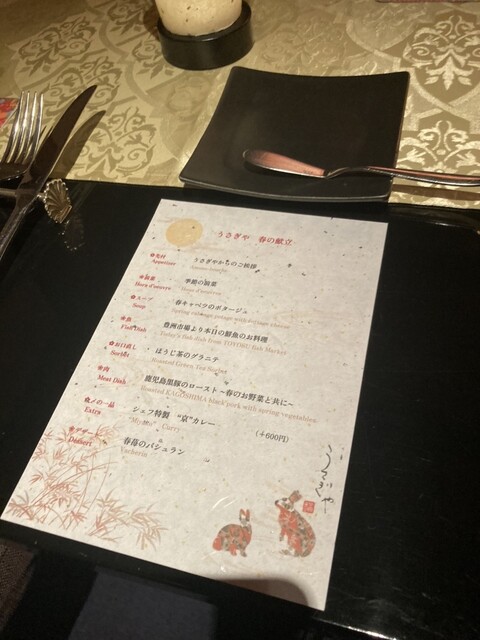 うさぎや 春の献立
先付 うさぎやからのご挨拶
Appetizer Amuse bouche
前菜 季節の前菜
Hors d'oeuvre Hors d'oeuvres
スープ 春キャベツのポタージュ
Soup Spring cabbage potage
魚 豊洲市場より本日の鮮魚のお料理
Fish Dish Today's fish dish from TOYOSU fish Market
お口直し ほうじ茶のグラニテ
Sorbet Roasted Green Tea Sorbet
肉 鹿児島黒豚のロースト~春のお野菜と共に~
Meat Dish Roasted KAGOSHIMA black pork with spring vegetables
〆ノ一品 シェフ特製 “京”カレー (+600円)
Entry Curry
デザート 春苺のバシュラン
Dessert Vacherin
うさぎや